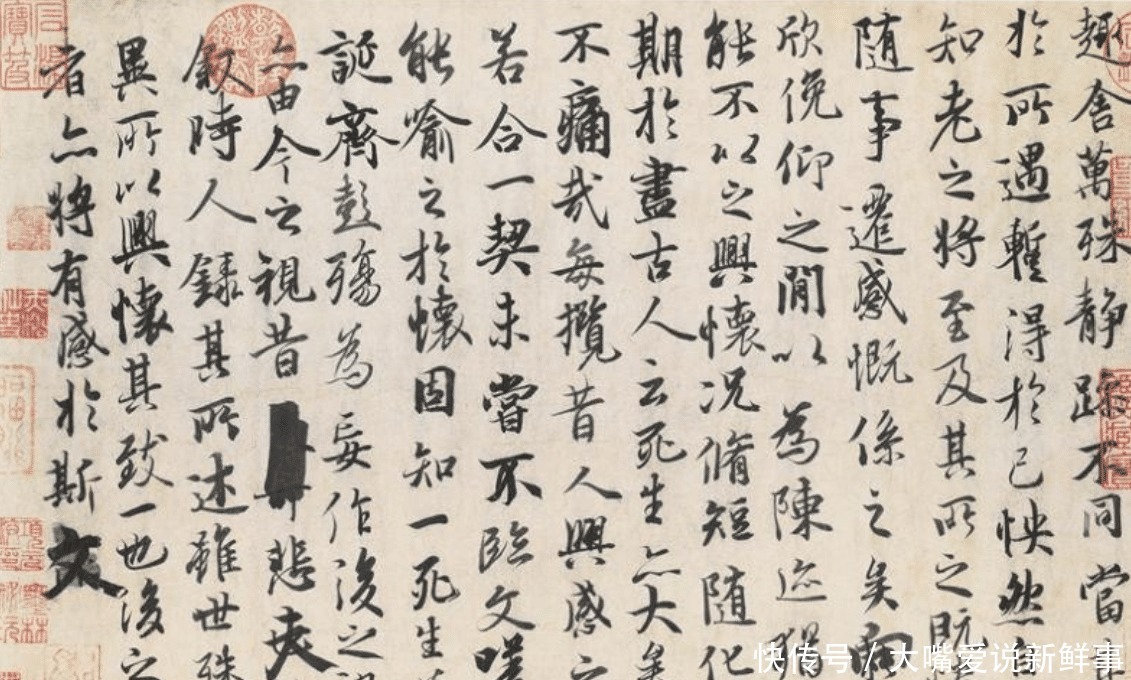 趣舍萬殊静躁不同當
於所遇蹔得於己怏然自
知老之將至及其所之既
隨事遷感慨係之矣向
欣俛仰之閒以為陳迹猶
能不以之興懷況脩短隨化
期於盡古人云死生亦大矣
不痛哉每攬昔人興感之
若合一契未嘗不臨文嗟
能喻之於懷固知一死生
誕齊彭殤為妄作後之
亦由今之視昔悲夫
敘時人錄其所述雖世殊
異所以興懷其致一也後之
者亦將有感於斯文
快传号 / 大嘴爱说新鲜事